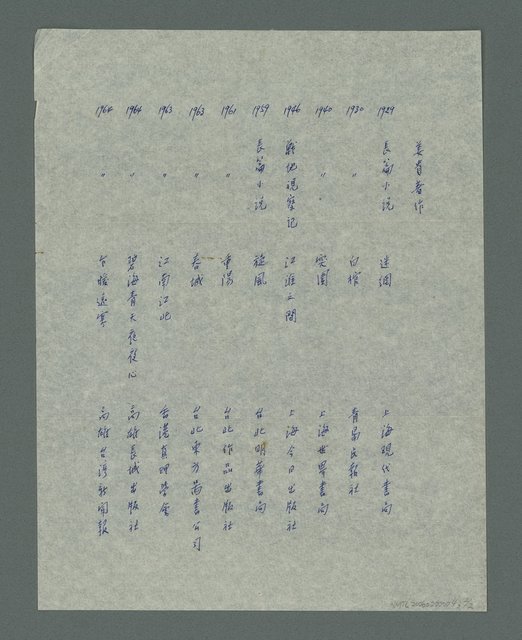 姜貴著作
1929 長篇小說 迷網 上海現代書局
1930 〃 白棺 青島民報社
1940 〃 突圍 上海世界書局
1946 戰地現察記 江淮之間 上海今日出版社
1959 長篇小說 旋風 台北明華書局
1961 〃 重陽 台北作品出版社
1963 〃 春城 台北東方圖書公司
1963 〃 江南江北 香港真理學會
1964 〃 碧海青天夜夜心 高雄長城出版社
1964 〃 台灣新聞報